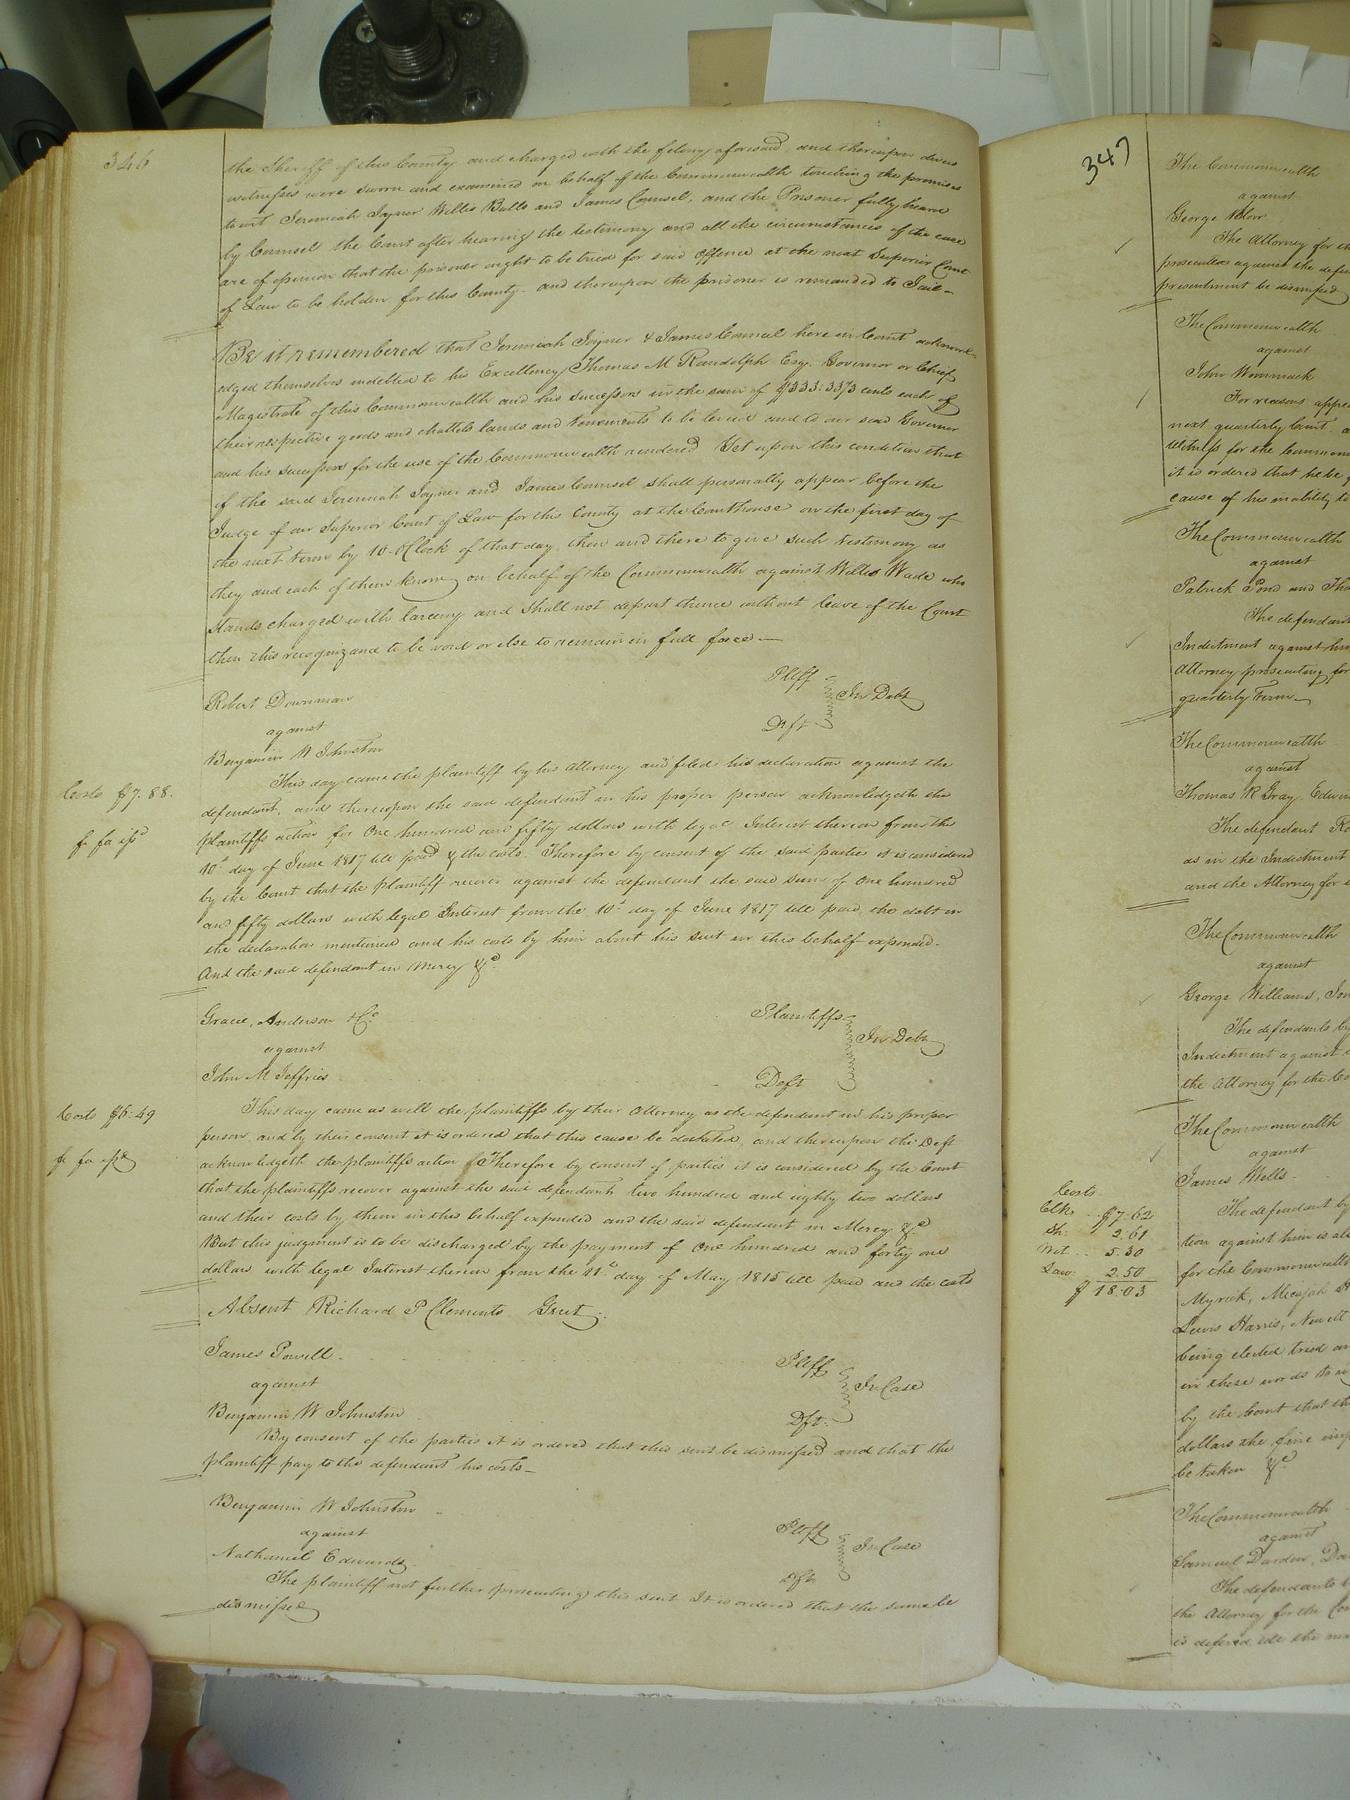 346
the Sheriff of this County and charged with the felony aforesaid, and thereupon divers
witnesses were sworn and examined on behalf of the Commonwealth touching the premises
towit Jeremiah Joyner Willis Balls and James Counsel, and the Prisoner fully heard
by Counsel the Court after hearing the testimony and all the circumstances of the case
are of opinion that the prisoner ought to be tried for said offence at the next Superior Court
of Law to be holden for this County. and thereupon the prisoner is remanded to Jail-
Be it remembered that Jeremiah Joyner & James Council here in Court acknowl-
edged themselves indebted to his Excellency Thomas M Randolph Esq. Governor or Chief
Magistrate of this Commonwealth and his successors in the sum of $333:33⅓ cents each of
their respective goods and chattels lands and tenements to be levied and to our said Governor
and his successors for the use of the Commonwealth rendered Yet upon this condition that
if the said Jeremiah Joyner and James Counsel shall personally appear before the
Judge of our Superior Court of Law for this County at the Courthouse on the first day of
the next term by 10-OClock of that day, then and there to give such testimony as
they and each of them know on behalf of the Commonwealth against Willis Wade who
stands charged with larceny and shall not depart thence without leave of the Court
then this recognizance to be void or else to remain in full force—
Robert Downman Pltff
against In Debt
Benjamin W Johnston Deft
This day came the plaintiff by his Attorney and filed his declaration against the
Costs $7.88.
defendant, and thereupon the said defendant in his proper person acknowledgeth the
fi fa issd
plaintiffs action for One hundred and fifty dollars with legal Interest thereon from the
10th day of June 1817 till paid & the costs. Therefore by consent of the said parties it is considered
by the Court that the plaintiff recover against the defendant the said sum of One hundred
and fifty dollars with legal Interest from the 10th day of June 1817 till paid, the debt in
the declaration mentioned and his costs by him about his suit in this behalf expended.
And the said defendant in Mercy &c.
Gracie, Anderson & Co Plaintiffs
against In Debt
John M Jeffries Deft
Costs $6.49
This day came as well the plaintiffs by their Attorney as the defendant in his proper
person and by their consent it is ordered that this cause be docketed, and thereupon the Deft
fi fa issd
acknowledgeth the plaintiffs action Therefore by consent of parties it is considered by the Court
that the plaintiffs recover against the said defendant two hundred and eighty two dollars
and their costs by them in this behalf expended and the said defendant in Mercy &c
But this judgment is to be discharged by the payment of One hundred and forty one
dollars with legal Interest thereon from the 11th day of May 1815 till paid and the costs
Absent Richard P Clements Gent.
James Powell Pltff
against In Case
Benjamin W Johnston Dft.
By consent of the parties it is ordered that this suit be dismissed and that the
plaintiff pay to the defendant his costs—
Benjamin W Johnston Pltff
against In Case
Nathaniel Edwards Dft
The plaintiff not further prosecuting this suit It is ordered that the same be
dismissed
347
The Commonwealth
against
George
The Attorney for th
prosecutes against the defe
presentment be dismissed
The Commonwealth
against
John Wommack
For reasons appe
next quarterly Court.
Witness for the Common
it is ordered that he be
cause of his inability to
The Commonwealth
against
Patrick Pond and Tho
The defendant
Indictment against him
Attorney prosecuting for
quarterly Term
The Commonwealth
against
Thomas R Gray, Edwin
The defendant Ro
as in the Indictment
and the Attorney for
The Commonwealth
against
George Williams, Jon
The defendants by
Indictment against
the Attorney for the Co
The Commonwealth
against
James Wells.
Costs
Clk $7.62
Sh 2.61
Wit 5.30
Law 2.50
$18.03
The defendant by
tion against him is al
for the Commonwealth
Myrick, Micajah
Lewis Harris, Newit
being elected tried an
in these words to wi
by the Court that th
dollars the fine imp
be taken &c
The Commonwealth
against
Samuel Darden, Da
The defendants
the Attorney for the Com
is deferred till the nex